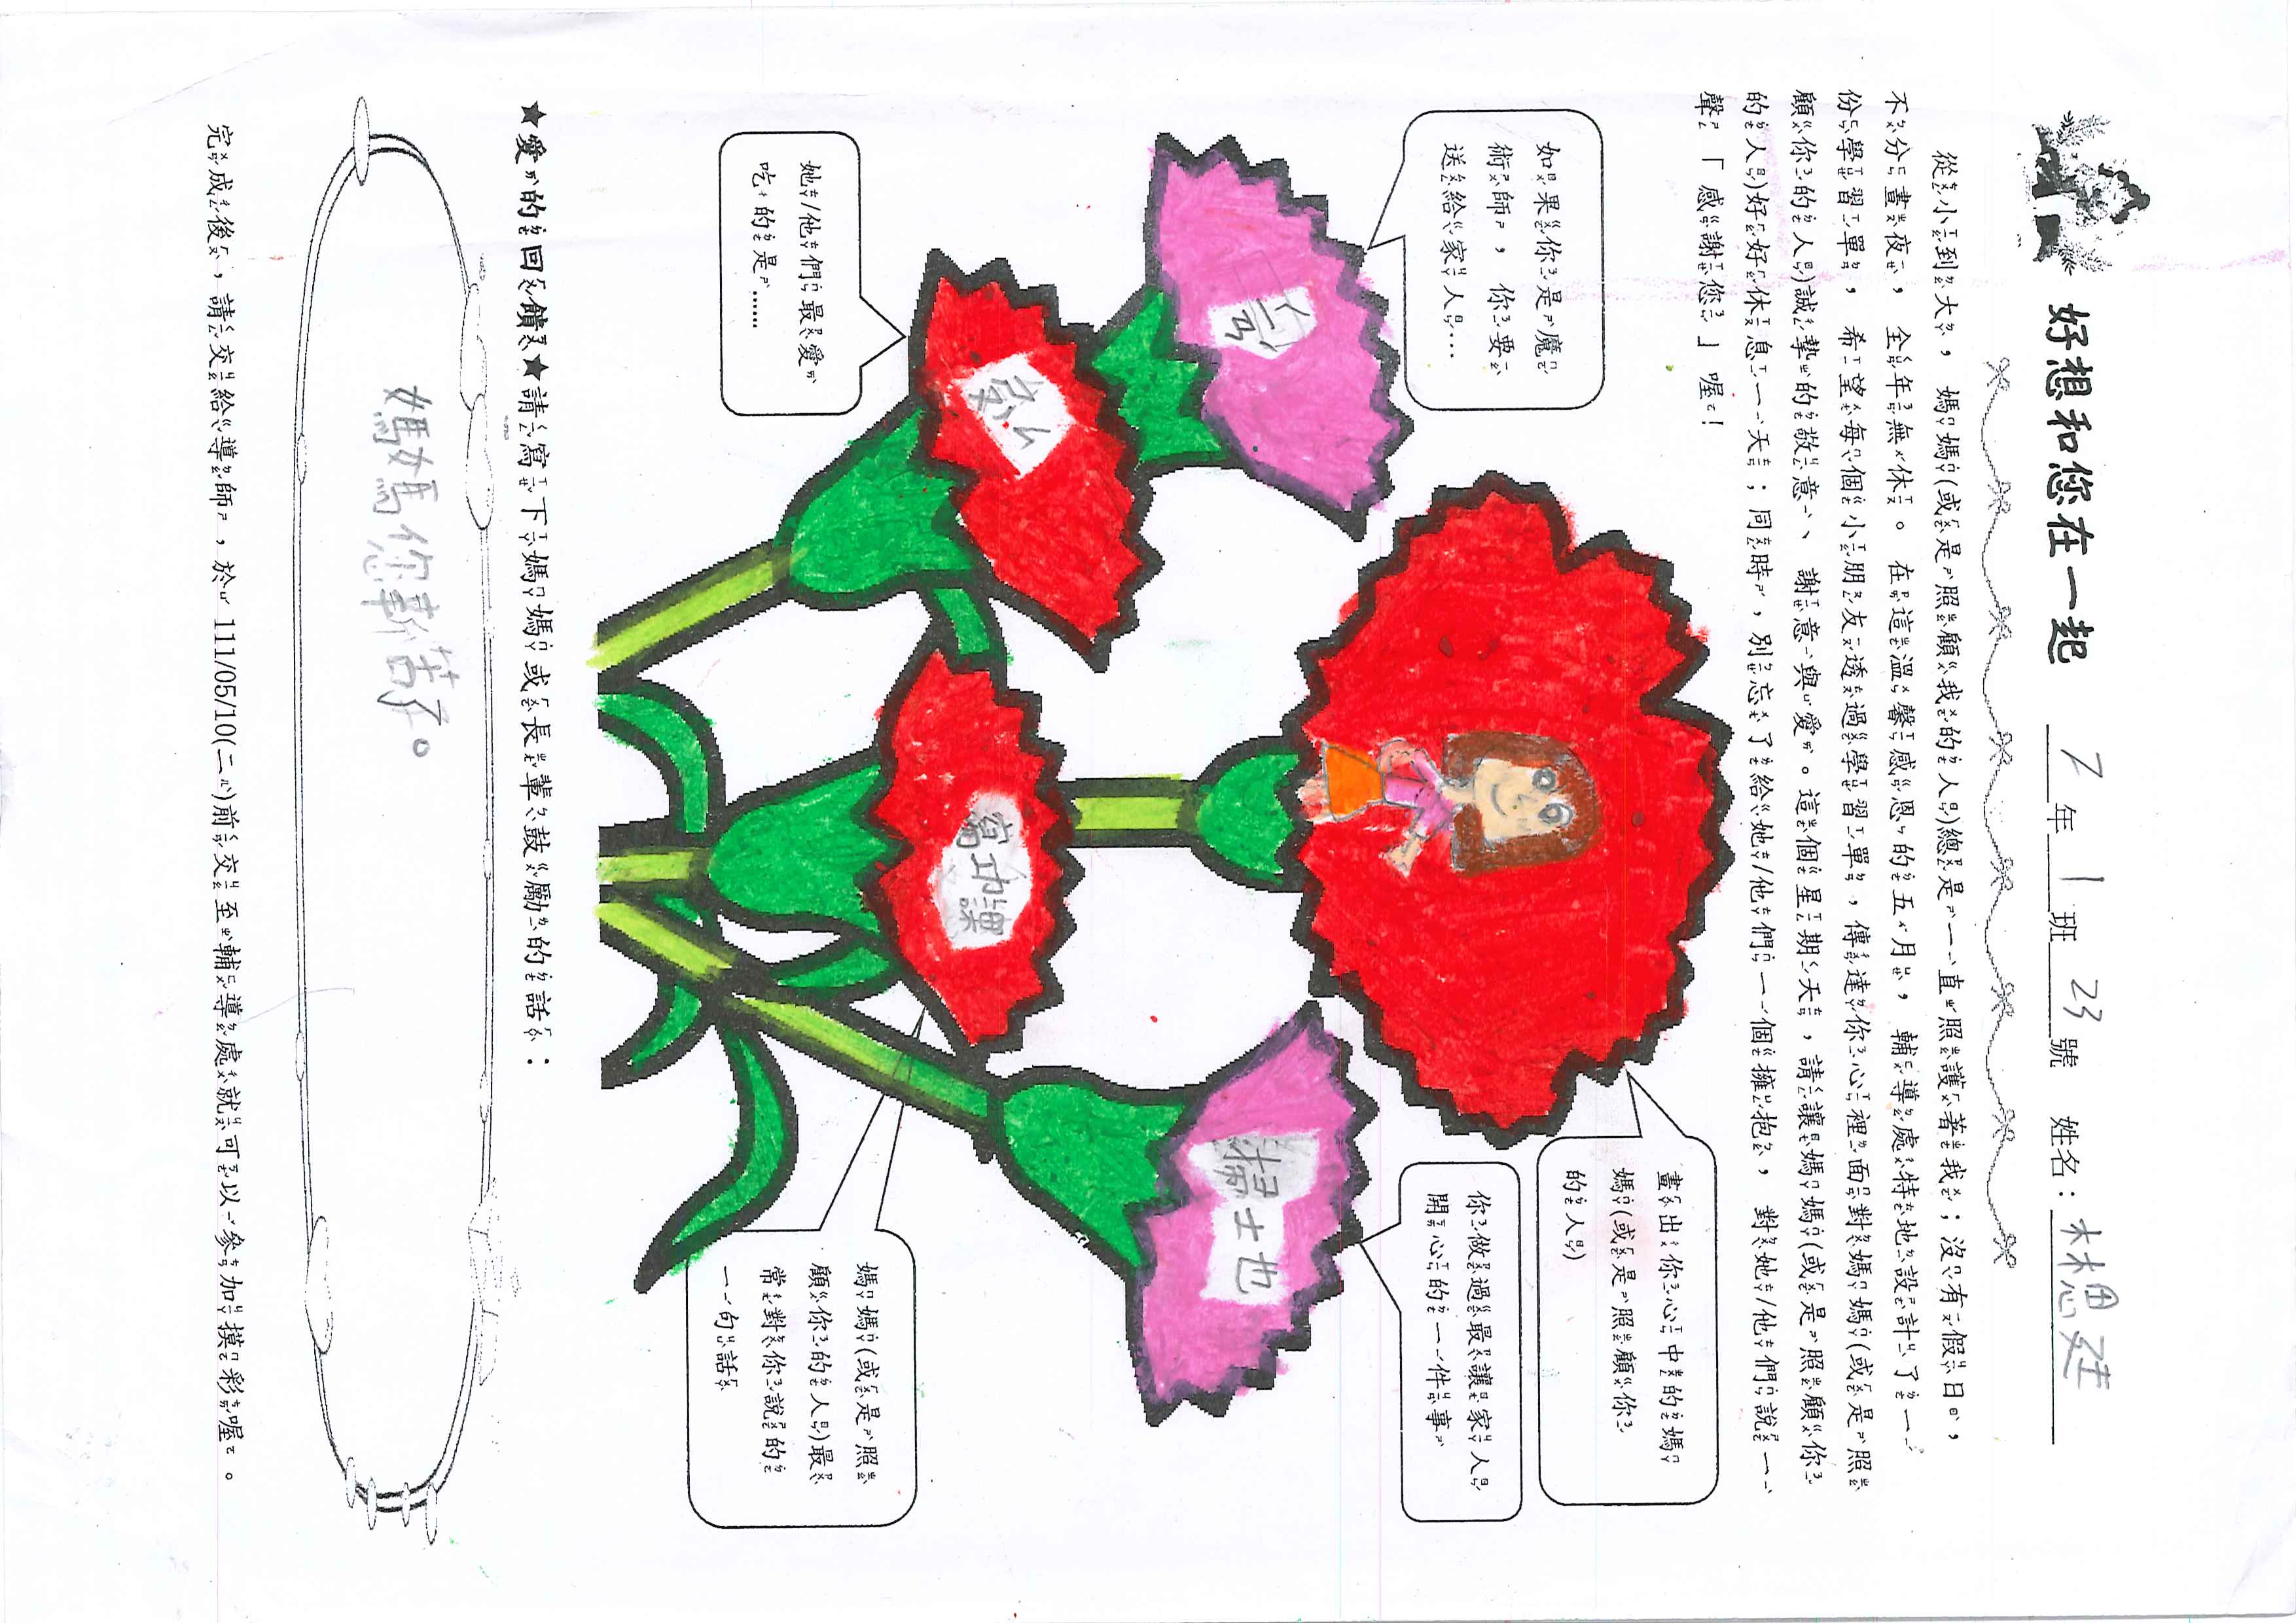 好想和您在一起 2年1班23號 姓名：林思妊
從小到大，媽媽(或是照顧我的人)總是一直照護著我；沒有假日，
不分晝夜，全年無休。在這溫馨感恩的五月，輔導處特地設計了一
份學習單，希望每個小朋友透過學習單，傳達你心裡面對媽媽(或是照
顧你的人)誠摯的敬意、謝意與愛。這個星期天，請讓媽媽(或是照顧你
的人)好好休息一天；同時，別忘了給她/他們一個擁抱，對她/他們說一
聲「感謝您」喔！
如果你是魔
術師，你要
送給家人…
畫出你心中的媽
媽(或是照顧你
的人)
你做過最讓家人
開心的一件事
掃土也
她/他們最愛
吃的是……
寫功課
媽媽(或是照
顧你的人)最
常對你說的
一句話
★愛的回饋★請寫下媽媽或長輩鼓勵的話：
媽媽您辛苦了。
完成後，請交給導師，於111/05/10(二)前交至輔導處就可以參加摸彩喔。